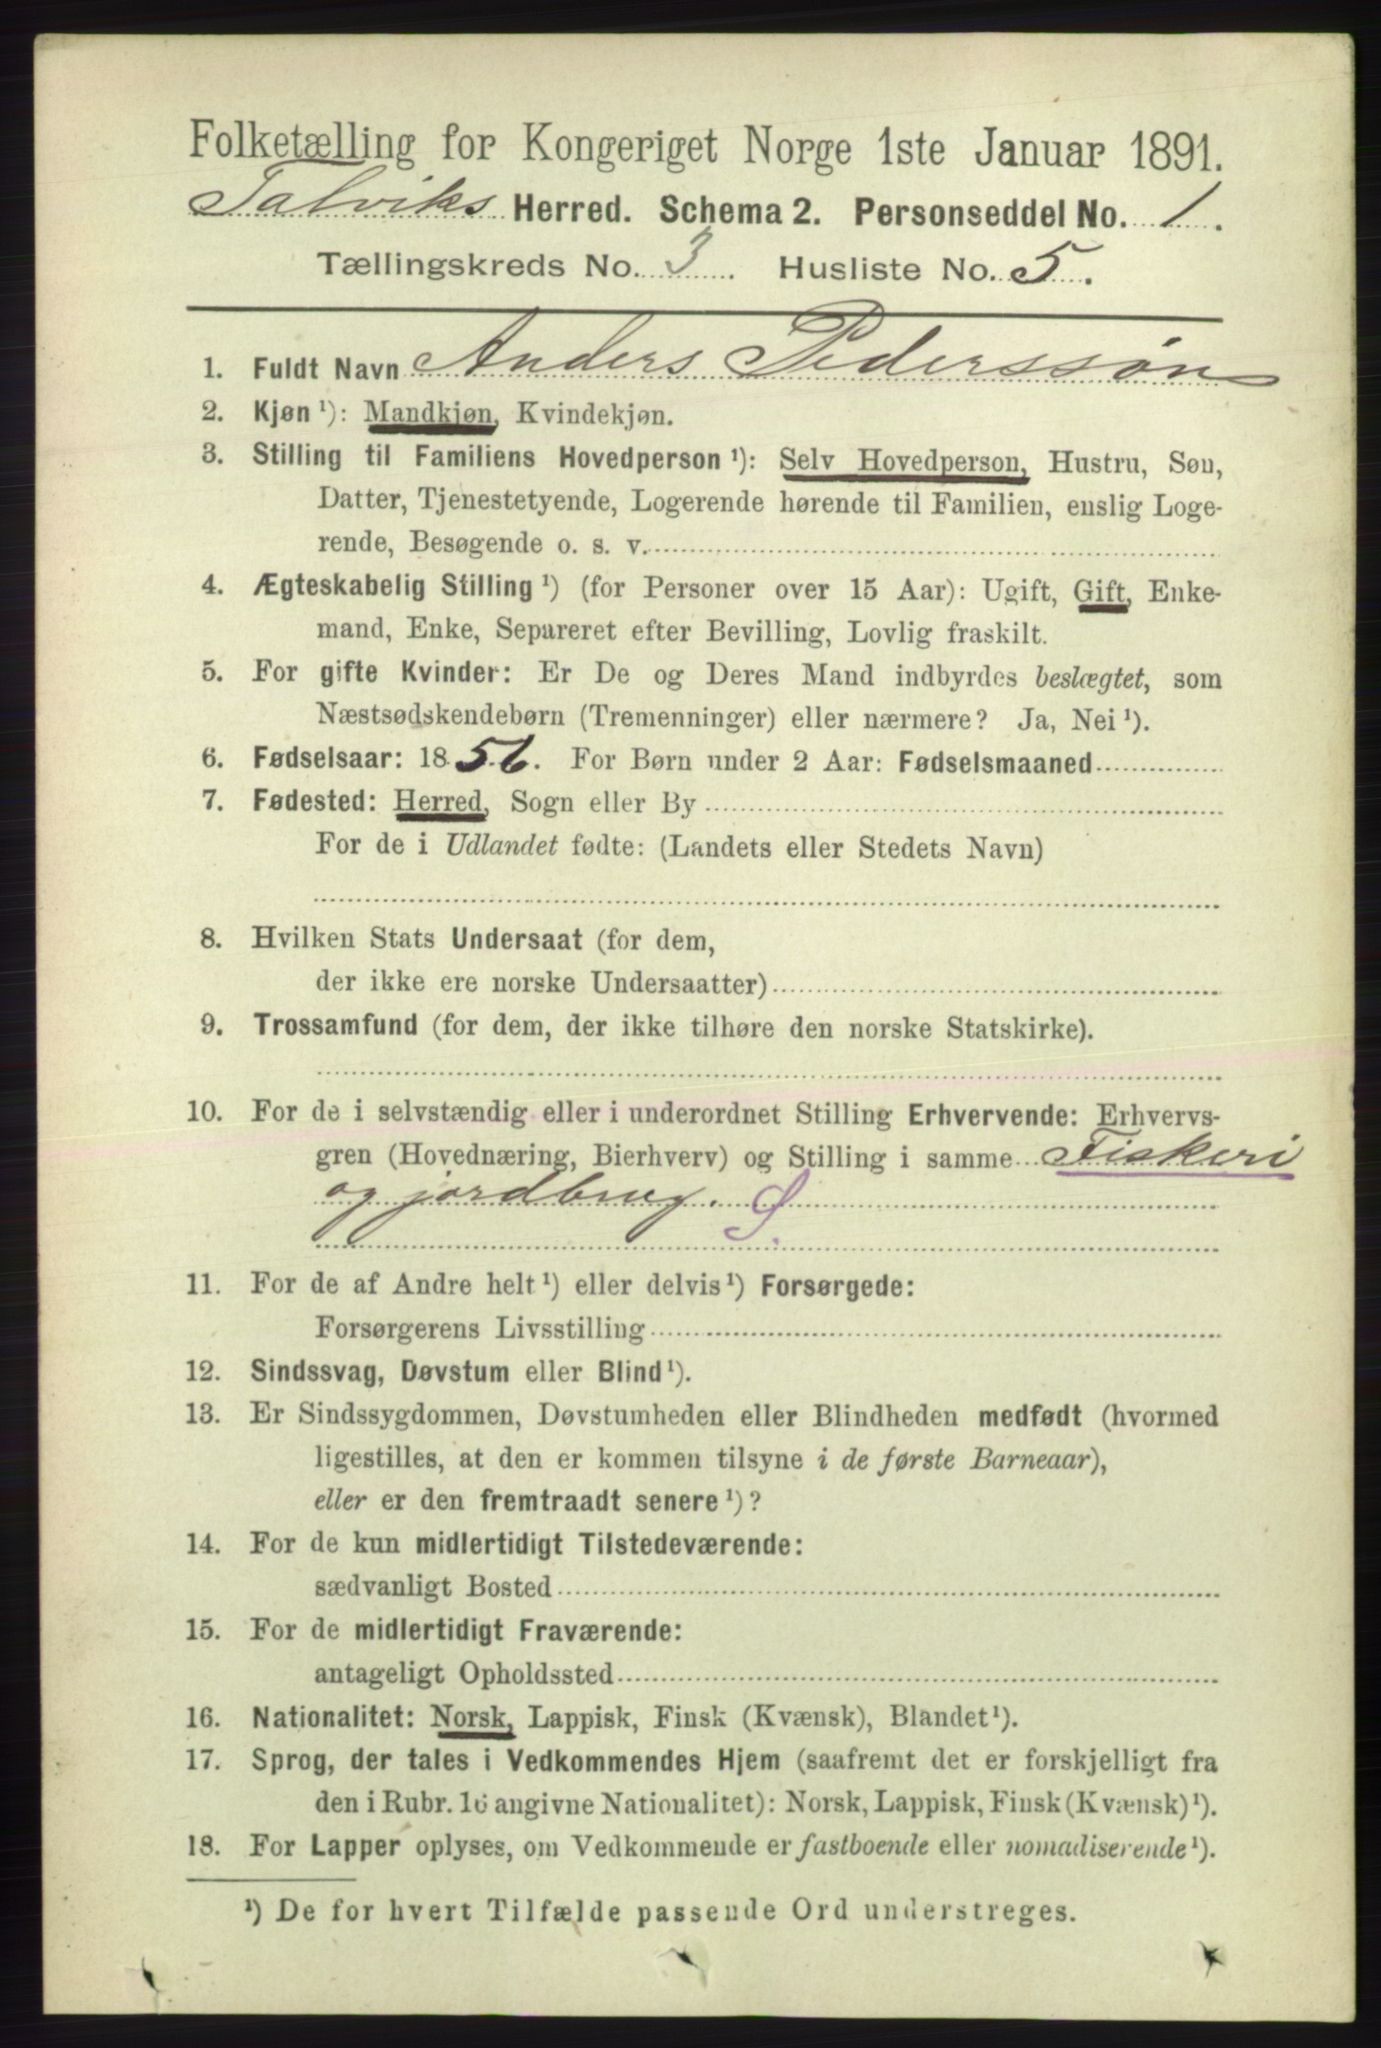 Folketælling for Kongeriget Norge 1ste Januar 1891.
Talviks Herred. Schema 2. Personseddel No. 1.
Tællingskreds No. 3. Husliste No. 5.
1. Fuldt Navn Anders Pederssøn
2. Kjøn ¹): Mandkjøn, Kvindekjøn.
3. Stilling til Familiens Hovedperson ¹): Selv Hovedperson, Hustru, Søn,
Datter, Tjenestetyende, Logerende hørende til Familien, enslig Loge-
rende, Besøgende o. s. v.
4. Ægteskabelig Stilling ¹) (for Personer over 15 Aar): Ugift, Gift, Enke-
mand, Enke, Separeret efter Bevilling, Lovlig fraskilt.
5. For gifte Kvinder: Er De og Deres Mand indbyrdes beslægtet, som
Næstsødskendebørn (Tremenninger) eller nærmere? Ja, Nei ¹).
6. Fødselsaar: 1856. For Børn under 2 Aar: Fødselsmaaned
7. Fødested: Herred, Sogn eller By
For de i Udlandet fødte: (Landets eller Stedets Navn)
8. Hvilken Stats Undersaat (for dem,
der ikke ere norske Undersaatter)
9. Trossamfund (for dem, der ikke tilhøre den norske Statskirke).
10. For de i selvstændig eller i underordnet Stilling Erhvervende: Erhvervs-
gren (Hovednæring, Bierhverv) og Stilling i samme Fiskeri
og jordbrug. S.
11. For de af Andre helt ¹) eller delvis ¹) Forsørgede:
Forsørgerens Livsstilling
12. Sindssvag, Døvstum eller Blind ¹).
13. Er Sindssygdommen, Døvstumheden eller Blindheden medfødt (hvormed
ligestilles, at den er kommen tilsyne i de første Barneaar),
eller er den fremtraadt senere ¹)?
14. For de kun midlertidigt Tilstedeværende:
sædvanligt Bosted
15. For de midlertidigt Fraværende:
antageligt Opholdssted
16. Nationalitet: Norsk, Lappisk, Finsk (Kvænsk), Blandet ¹).
17. Sprog, der tales i Vedkommendes Hjem (saafremt det er forskjelligt fra
den i Rubr. 16 angivne Nationalitet): Norsk, Lappisk, Finsk (Kvænsk) ¹).
18. For Lapper oplyses, om Vedkommende er fastboende eller nomadiserende ¹).
¹) De for hvert Tilfælde passende Ord understreges.